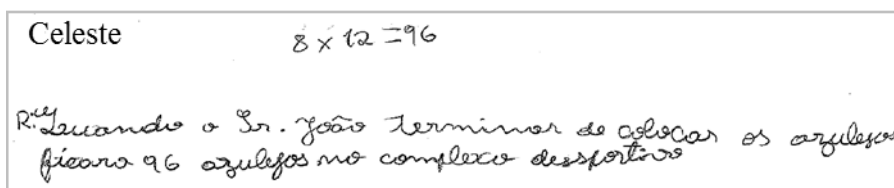 Celeste
8 x 12 = 96
R: Quando o Sr. João terminar de colocar os azulejos
ficara 96 azulejos no complexo dessportivo